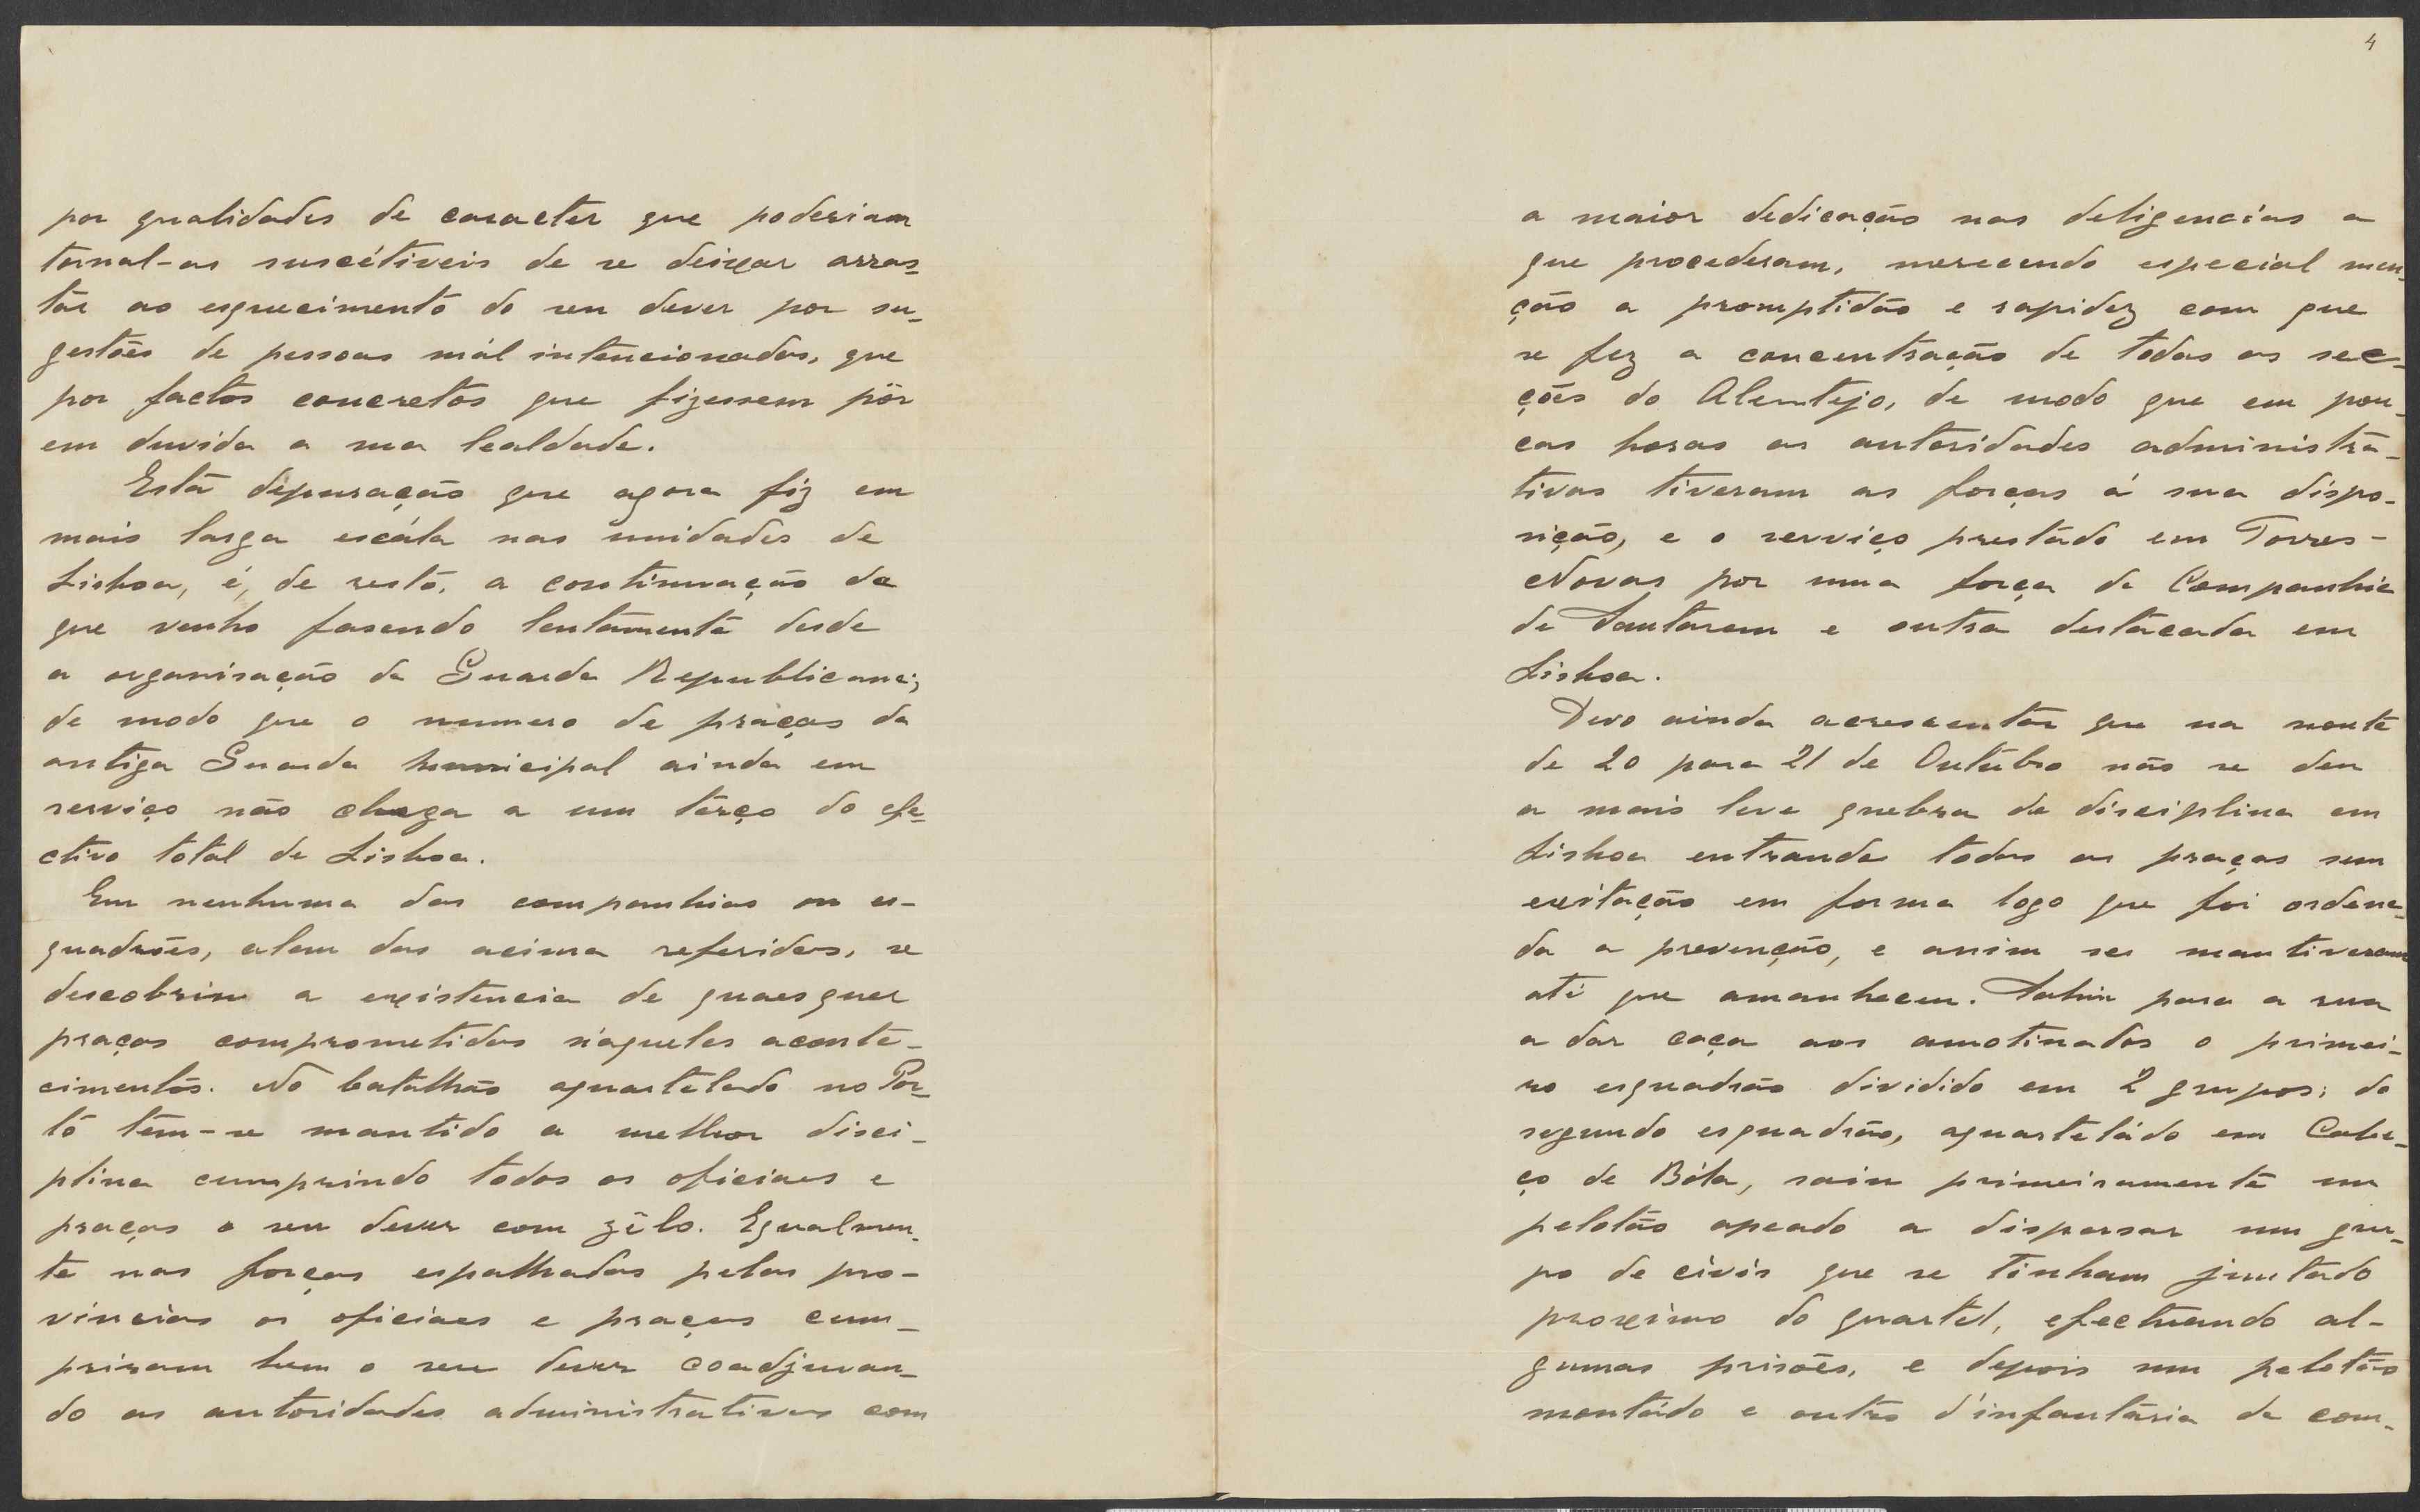 por qualidades de caracter que poderiam
tornal-as suscétiveis de se deixar arras-
tar ao esquecimento do seu dever por su-
gestões de pessoas mál intencionadas, que
por factos concretos que fizessem pôr
em duvida a sua lealdade.
Esta depuração que agora fiz em
mais larga escála nas unidades de
Lisboa, é, de resto, a continuação da
que venho fasendo lentamente desde
a organisação da Guarda Republicana;
de modo que o numero de praças da
antiga Guarda municipal ainda em
serviço não chega a um terço do efe-
ctivo total de Lisboa.
Em nenhuma das companhias ou es-
quadrões, alem das acima referidas, se
descobriu a existencia de quaesquer
praças comprometidas n'aqueles aconte-
cimentos. No batalhão aquartelado no Por-
to tem-se mantido a melhor disci-
plina cumprindo todos os oficiaes e
praças o seu dever com zêlo. Egualmen-
te nas forças espalhadas pelas pro-
vincias os oficiaes e praças cum-
priram bem o seu dever coadjuvan-
do as autoridades administrativas com
4
a maior dedicação nas deligencias a
que procederam, merecendo especial men-
ção a promptidão e rapidez com que
se fez a concentração de todas as sec-
ções do Alemtejo, de modo que em pou-
cas horas as autoridades administra-
tivas tiveram as forças á sua dispo-
sição, e o serviço prestádo em Torres-
Novas por uma força da Companhia
de Santarem e outra destacada em
Lisboa.
Devo ainda acrescentar que na noute
de 20 para 21 de Outubro não se deu
a mais leve quebra de disciplina em
Lisboa entrando todas as praças sem
exitação em forma logo que foi ordena-
da a prevenção, e assim ses mantiveram
até que amanheceu. Sahiu para a rua
a dar caça aos amotinados o primei-
ro esquadrão dividido em 2 grupos; do
segundo esquadrão, aquarteládo em Cabe-
ço de Bóla, saiu primeiramente um
pelotão apeado a dispersar um gru-
po de civis que se tinham juntado
proximo do quartel, efectuando al-
gumas prisões, e depois um pelotão
montádo e outro d'infantaria da com-